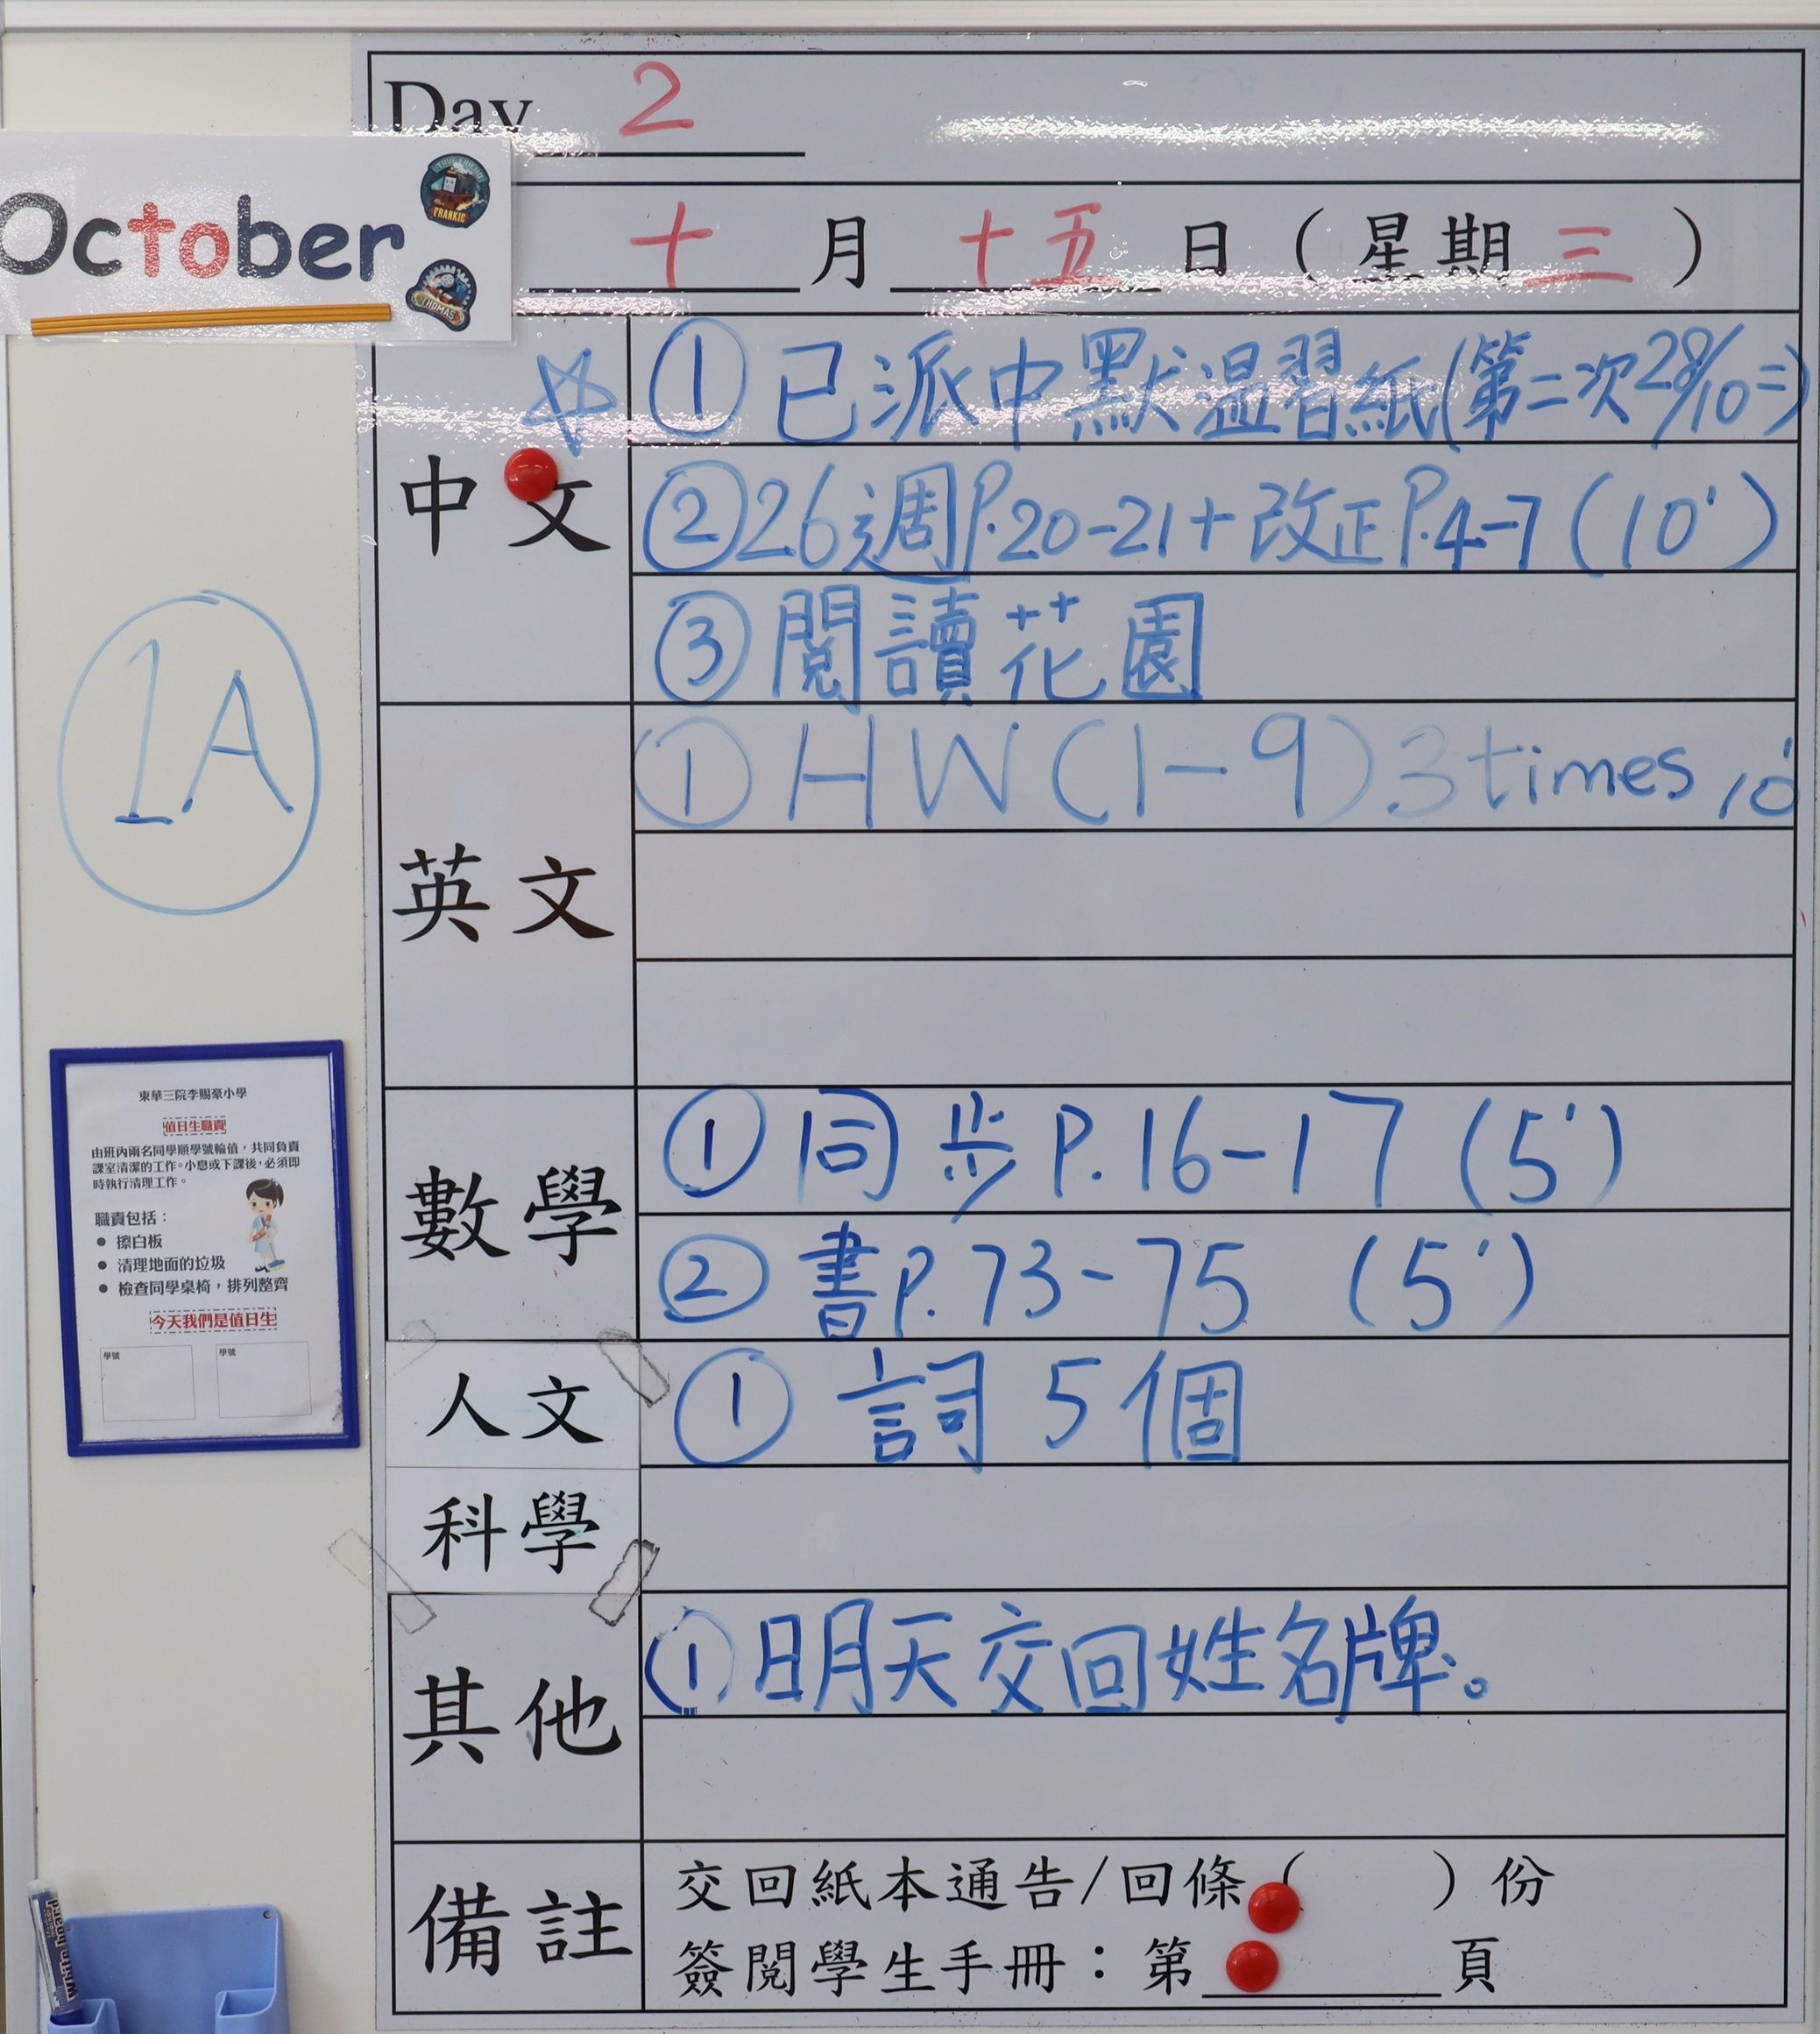 Day 2
October
TRUE FRIEND
FRANKIE
THOMAS
十月十五日(星期三)
中文
①已派中默温習紙(第二次28/10二)
②26週P.20-21+改正P.4-7(10')
③閱讀花園
1A
英文
①HW(1-9)3times 10'
數學
①同步P.16-17(5')
②書P.73-75(5')
人文
①詞5個
科學
其他
①明天交回姓名牌。
備註
交回紙本通告/回條( )份
簽閱學生手冊：第 頁
東華三院李賜豪小學
值日生職責
由班內兩名同學順學號輪值，共同負責
課室清潔的工作。小息或下課後，必須即
時執行清理工作。
職責包括：
● 擦白板
● 清理地面的垃圾
● 檢查同學桌椅，排列整齊
今天我們是值日生
學號
學號